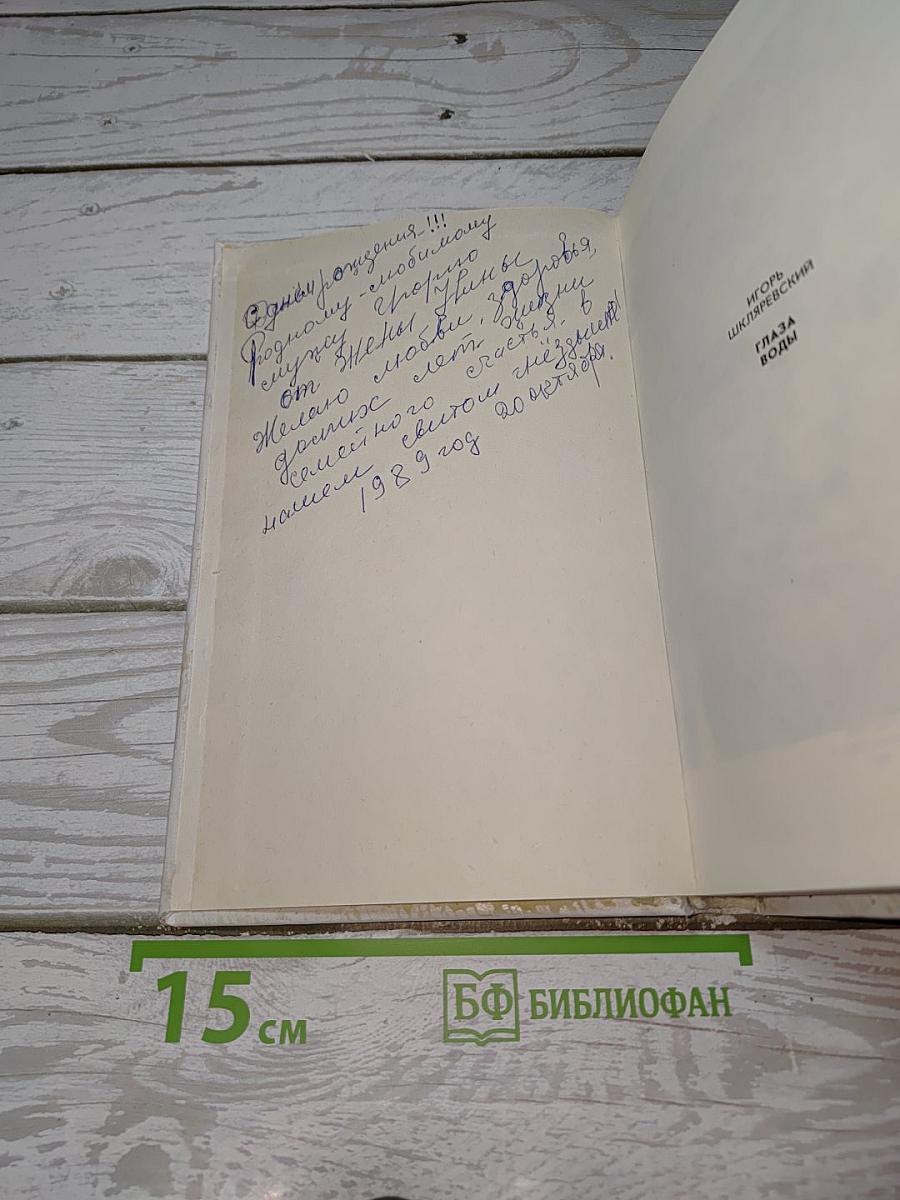 С днём рождения!!!
Родному-любимому
мужу Юрию
от жены Нины
Желаю любви, здоровья,
долгих лет жизни
семейного счастья в
нашем свитом гнёздышке!
1989 год 20 октября.
ИГОРЬ
ШКЛЯРЕВСКИЙ
ГЛАЗА
ВОДЫ
15 см
БФ БИБЛИОФАН